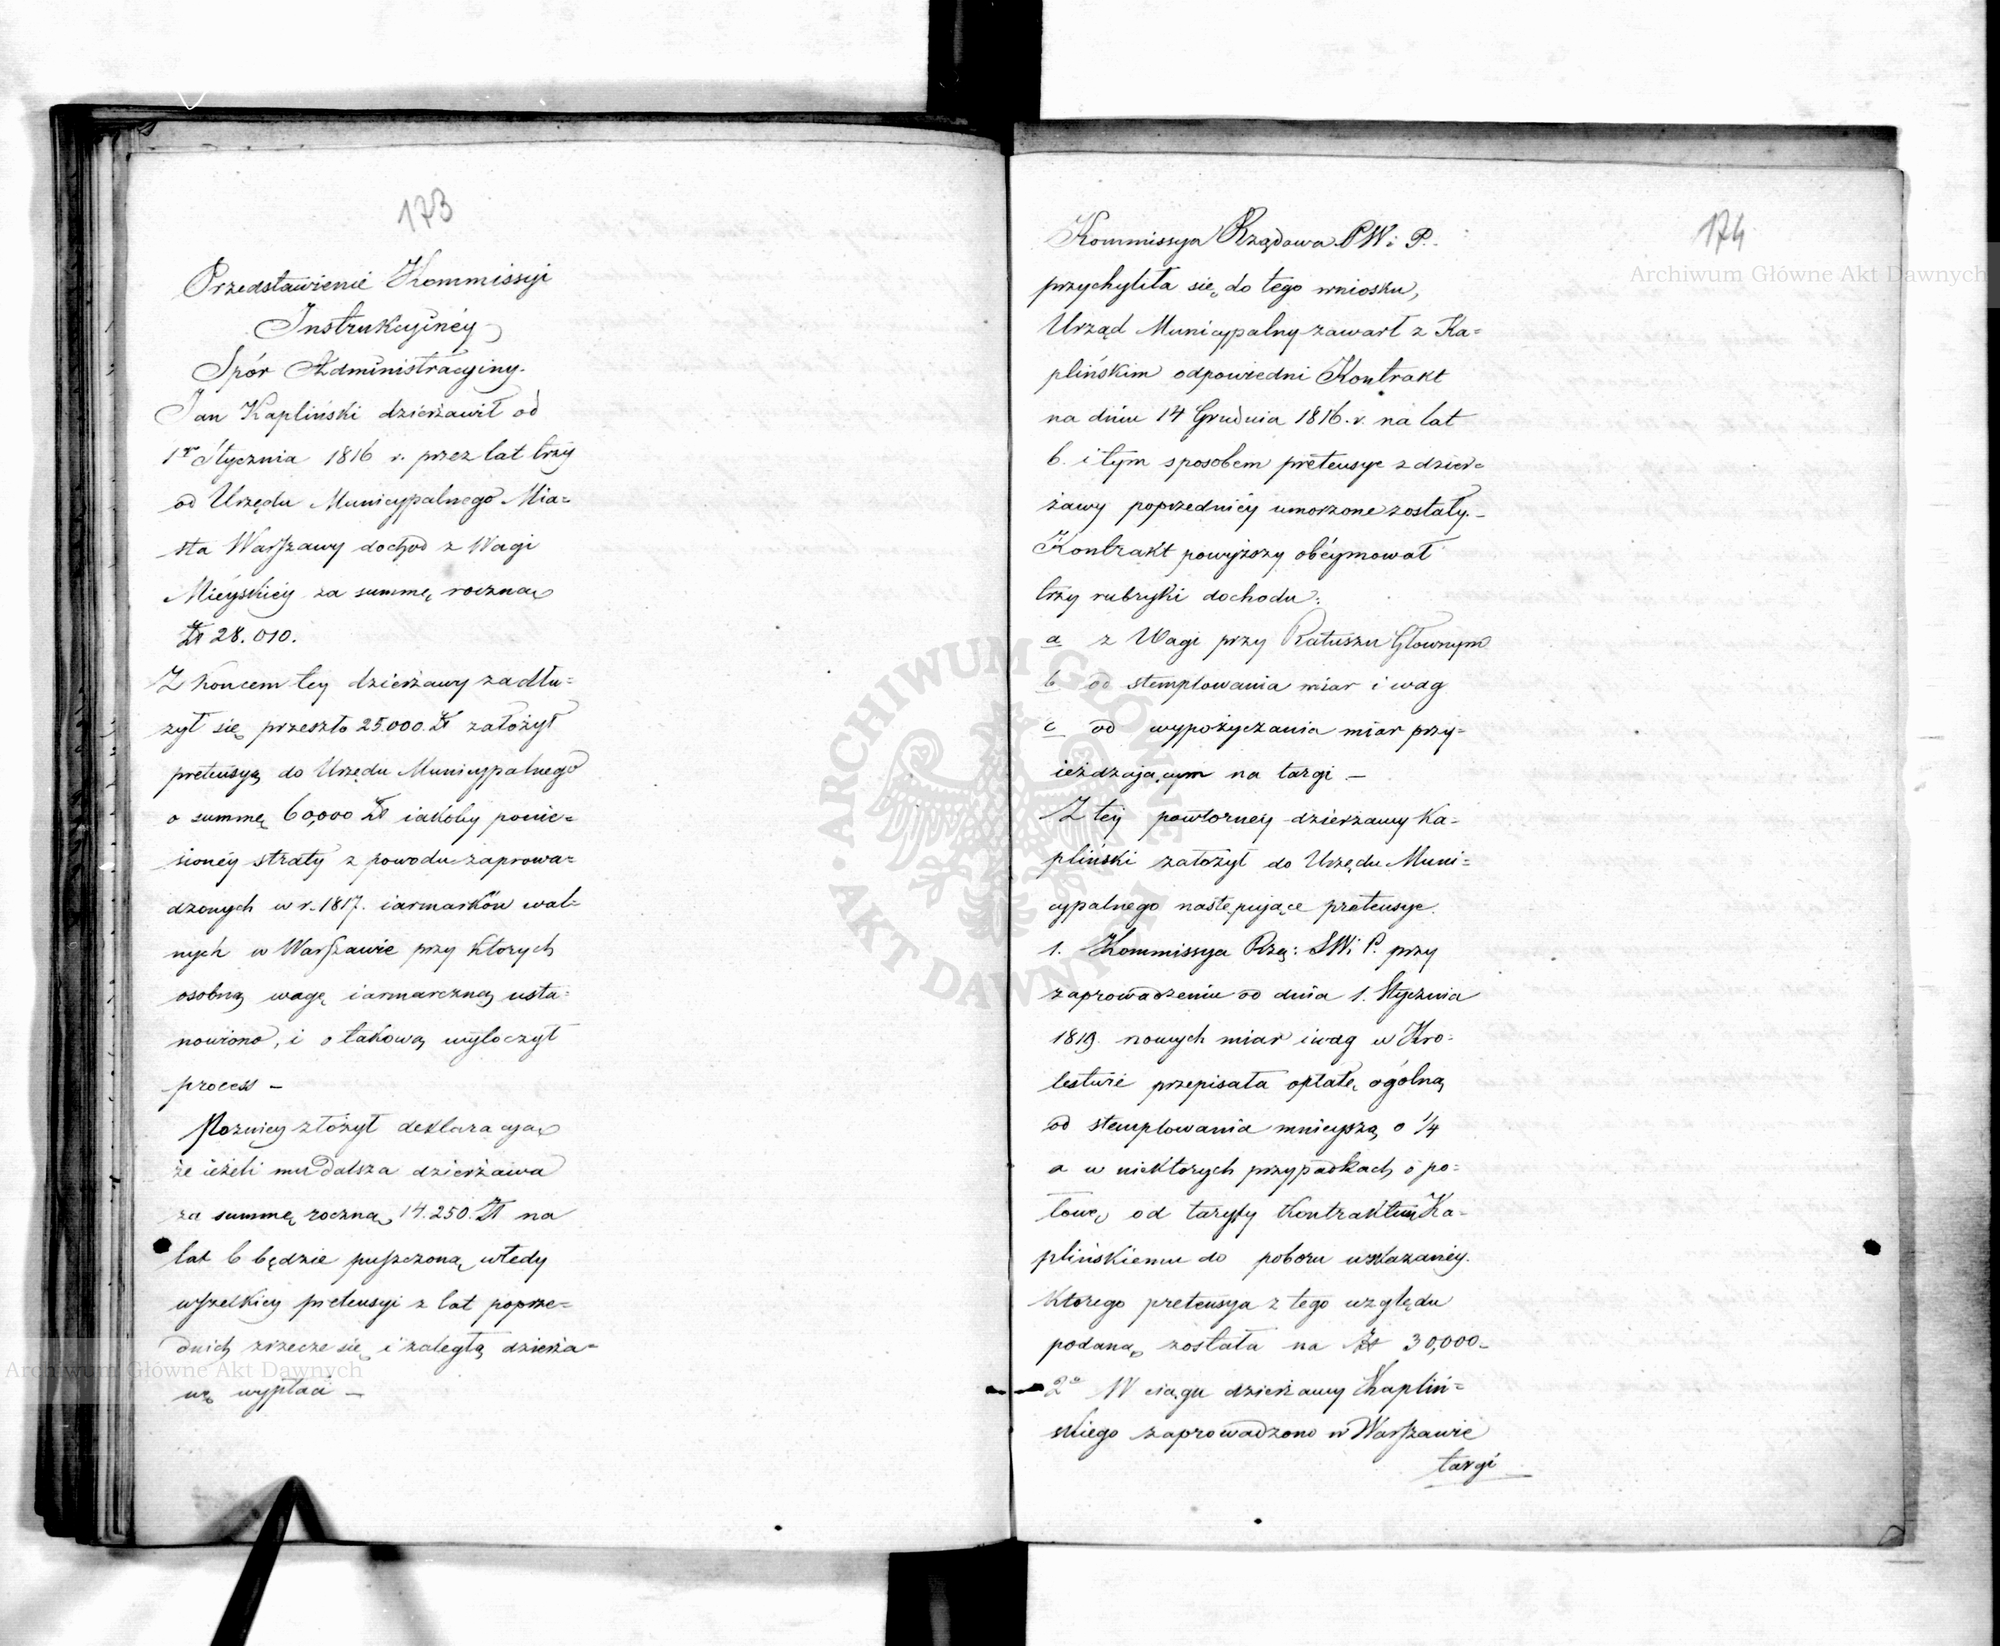 173
Przedstawienie Kommissyi
Instrukcyinéy
Spór Administracyiny.
Jan Kapliński dzierżawił od
1go Stycznia 1816 r. przez lat trzy
od Urzędu Municypalnego Mia=
sta Warszawy dochod z Wagi
Mieyskiéy za summę roczną
Zł 28.010.
Z koncem tey dzierżawy zadłu=
żył się przeszło 25.000. Zł założył
pretensyą do Urzędu Municypalnego
o summę 60,000 Zł iakoby ponie=
sionéy straty z powodu zaprowa=
dzonych w r. 1817. iarmarków wal=
nych w Warszawie przy ktorych
osobną wagę iarmarczną usta=
nowiono, i o takową wytoczył
process —
Pozniey złożył deklaracyą
że ieżeli mu dalsza dzierżawa
za summę roczną 14.250. Zł na
lat 6 będzie puszczoną wtedy
wszelkiey pretensyi z lat poprze=
dnich zrzecze się i zaległą dzierża=
wę wypłaci —
174
Kommissya Rządowa PW i P.
przychyliła się do tego wniosku,
Urząd Municypalny zawarł z Ka=
plińskim odpowiedni Kontrakt
na dniu 14 Grudnia 1816. r. na lat
6. i tym sposobem pretensye z dzier=
żawy poprzedniéy umorzone zostały.
Kontrakt powyższy obéymował
trzy rubryki dochodu:
a z Wagi przy Ratuszu Głownym
b od stemplowania miar i wag
c od wypożyczania miar przy=
ieżdzaiącym na targi —
Z téy powtorney dzierżawy Ka=
pliński założył do Urzędu Muni=
cypalnego następuiące pretensye.
1. Kommissya Rzą: SWi P. przy
zaprowadzeniu od dnia 1. Stycznia
1819. nowych miar i wag w Kro=
lestwie przepisała opłatę ogólną
od stemplowania mnieyszą o 1/4
a w niektorych przypadkach o po=
łowę od taryfy Kontraktem Ka=
plińskiemu do poboru wskazanéy.
Ktorego pretensya z tego względu
podaną została na Zł 30,000
2o W ciągu dzierżawy Kapliń=
skiego zaprowadzono w Warszawie
targi
Archiwum Główne Akt Dawnych
Archiwum Główne Akt Dawnych
ARCHIWUM GŁÓWNE AKT DAWNYCH